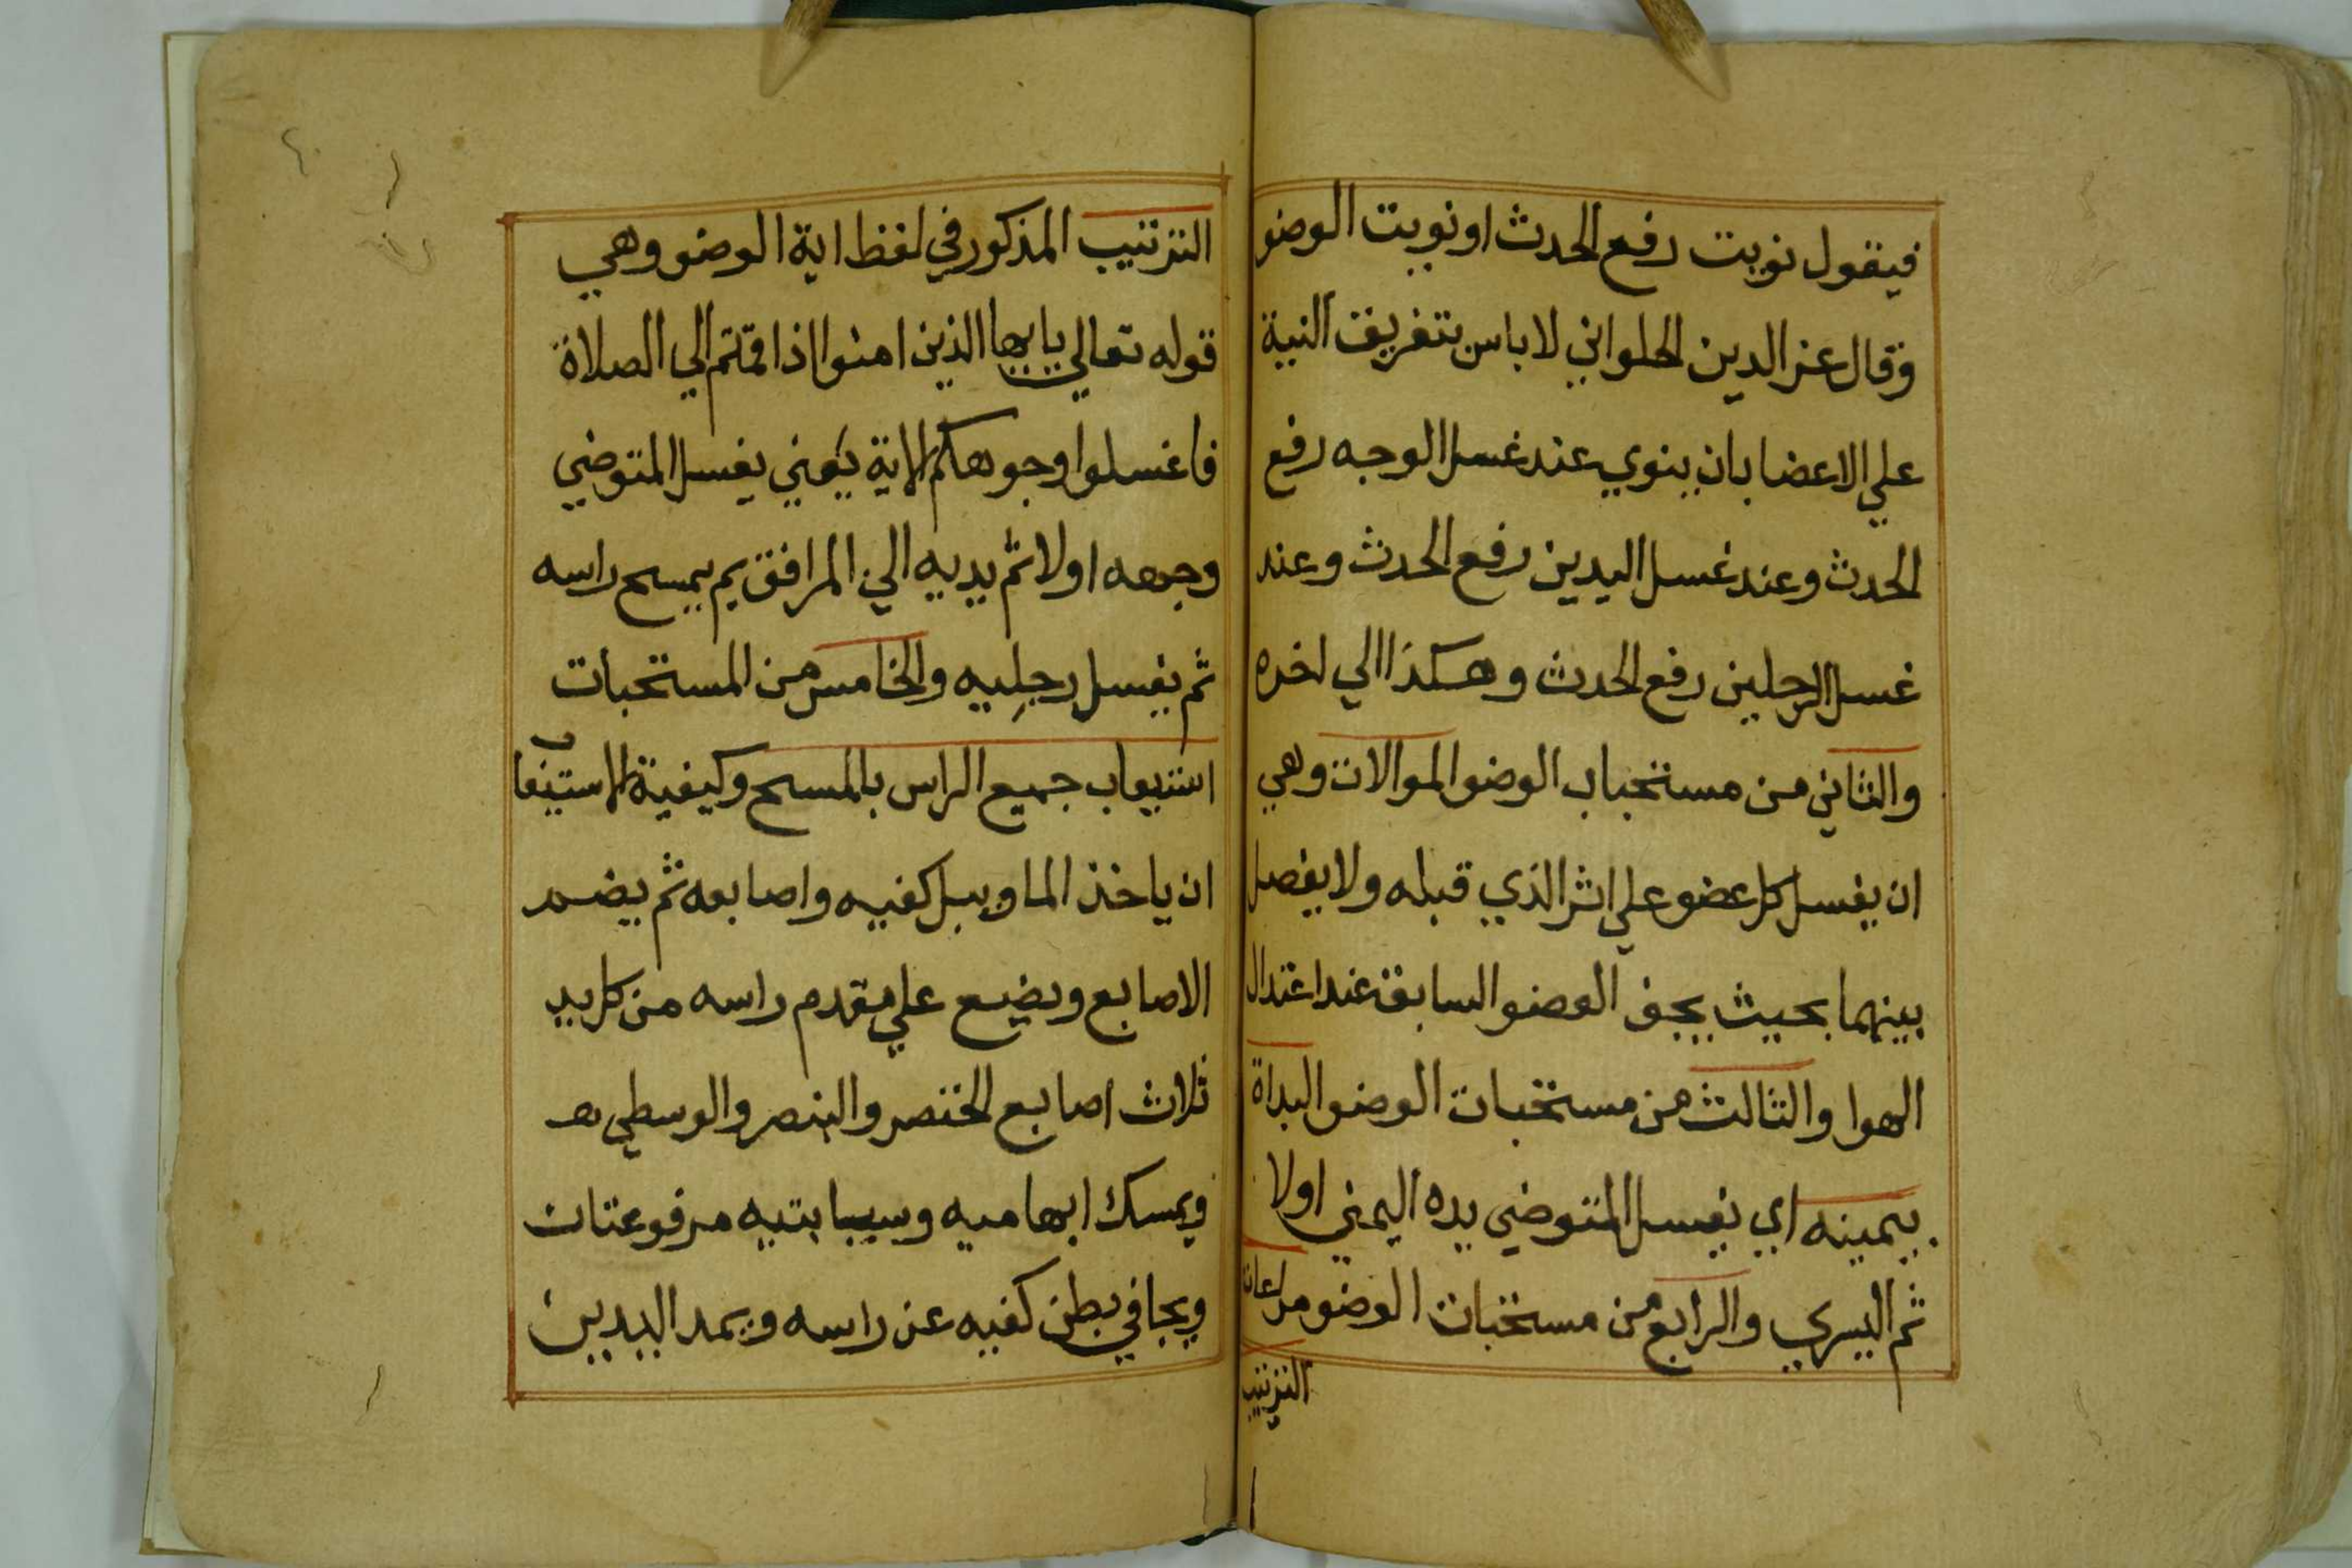 فيقول نويت رفع الحدث او نويت الوضو
وقال عز الدين الحلواني لا باس بتفريق النية
علي الاعضا بان ينوي عند غسل الوجه رفع
الحدث وعند غسل اليدين رفع الحدث وعند
غسل الرجلين رفع الحدث وهكذا الي اخره
والثاني من مستحباب الوضو الموالات وهي
ان يغسل كل عضو علي اثر الذي قبله ولا يفصل
بينهما بحيث يجف العضو السابق عند اعتدال
الهوا والثالث من مستحبات الوضو البداة
بيمينه اي يغسل المتوضي يده اليمني اولا
ثم اليسري والرابع من مستحبات الوضو مراعات
الترتيب
الترتيب المذكور في لفظ اية الوضو وهي
قوله تعالي يايها الذين امنوا اذا قمتم الي الصلاة
فاغسلوا وجوهكم الاية يعني يغسل المتوضي
وجهه اولا ثم يديه الي المرافق ثم يمسح راسه
ثم يغسل رجليه والخامس من المستحبات
استيعاب جميع الراس بالمسح وكيفية الاستيعاب
ان ياخذ الما ويبل كفيه واصابعه ثم يضم
الاصابع ويضع علي مقدم راسه من كل يد
ثلاث اصابع الخنصر والبنصر والوسطي
ويمسك ابهاميه وسبابتيه مرفوعتان
ويجافي بطن كفيه عن راسه ويمد اليدين